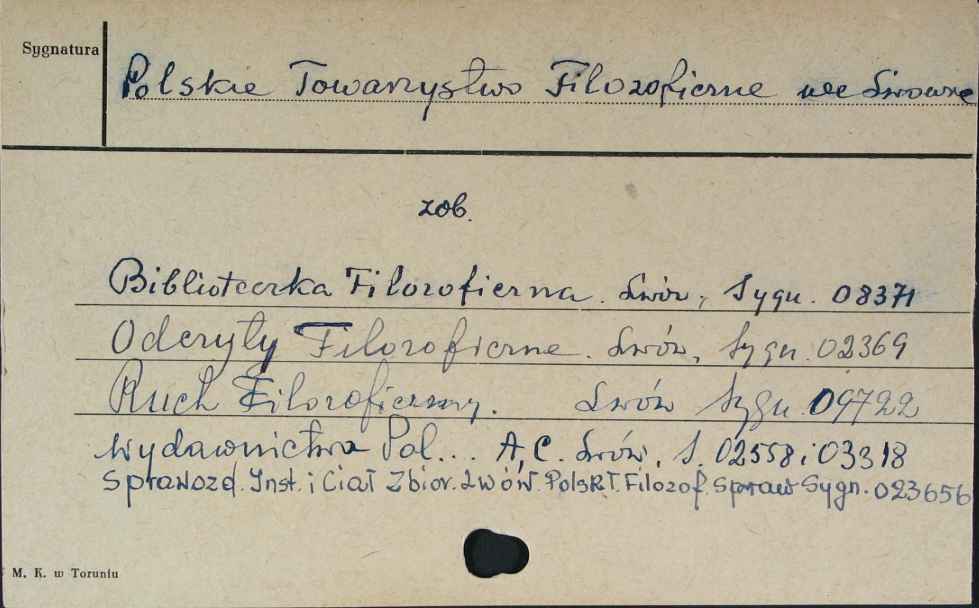 Sygnatura
Polskie Towarzystwo Filozoficzne we Lwowie
zob.
Biblioteczka Filozoficzna. Lwów, Sygn. 08371
Odczyty Filozoficzne. Lwów, Sygn. 02369
Ruch Filozoficzny. Lwów Sygn. 09722
Wydawnictwa Pol... A, C. Lwów, S. 02558 i 03318
Sprawozd. Inst. i Ciał Zbior. Lwów. Polsk T. Filozof. Spraw Sygn. 023656
M. K. w Toruniu